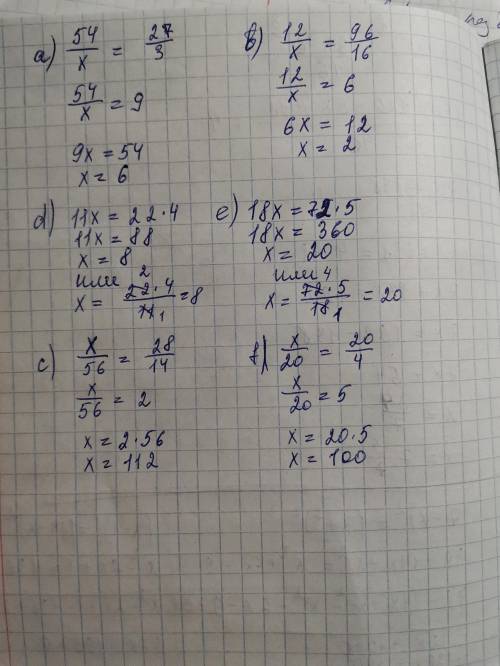 a) 54/x = 27/3
54/x = 9
9x = 54
x = 6
b) 12/x = 96/16
12/x = 6
6x = 12
x = 2
d) 11x = 22·4
11x = 88
x = 8
или
x = 22·4/11 = 8
2
1
e) 18x = 72·5
18x = 360
x = 20
или
x = 72·5/18 = 20
4
1
c) x/56 = 28/14
x/56 = 2
x = 2·56
x = 112
f) x/20 = 20/4
x/20 = 5
x = 20·5
x = 100